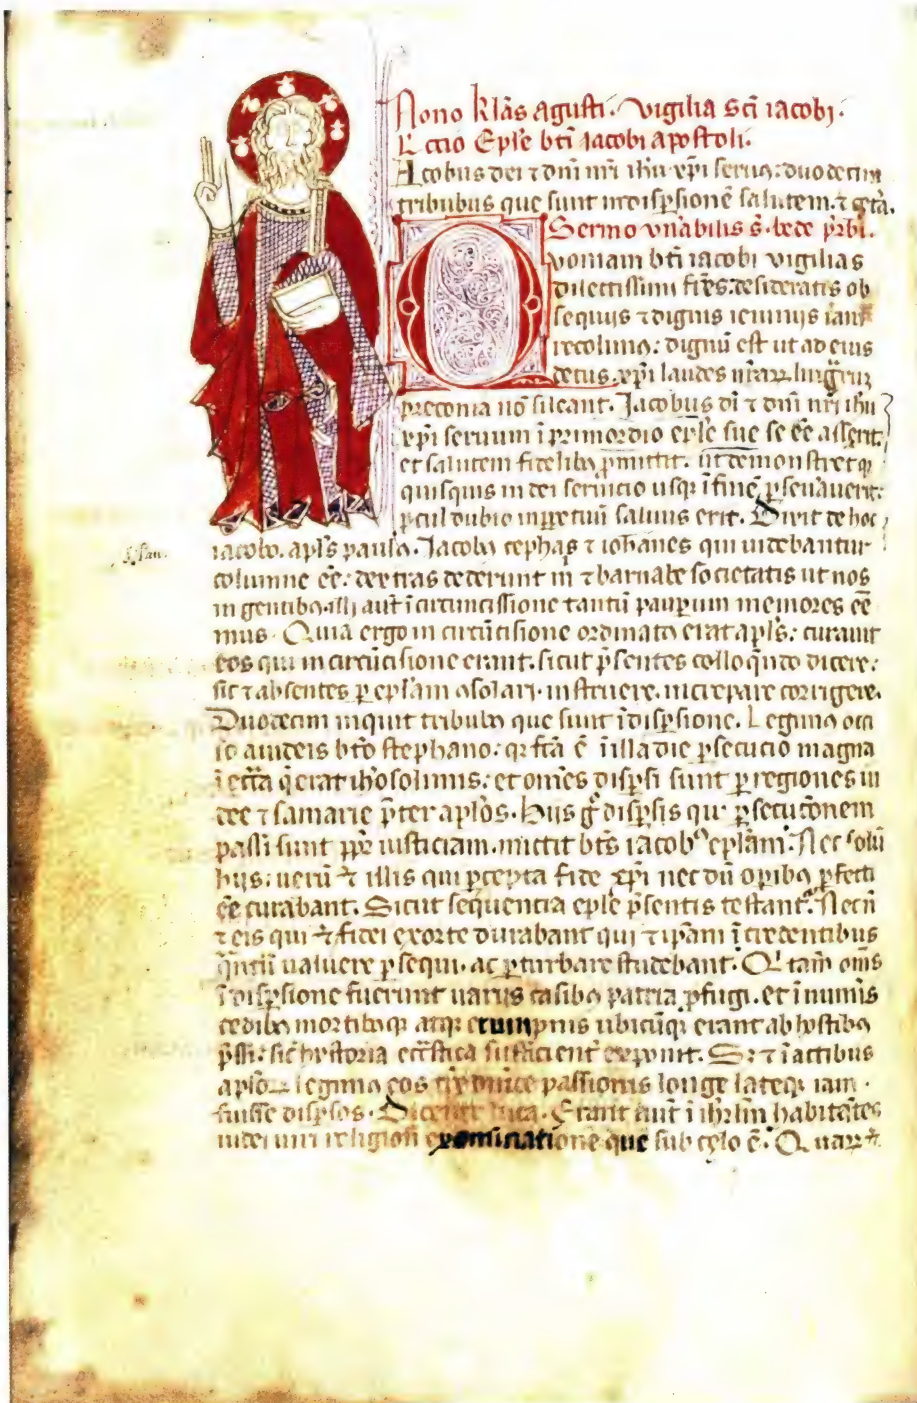 Nono kl̄as agusti. Vigilia sc̄i iacobi.
Lectio Ep̄le bt̄i iacobi apostoli.
Iacobus dei ⁊ dn̄i nr̄i ih̄u xp̄i seruus: duodecim
tribubus que sunt in dispsionē salutem. ⁊ cet̄a.
Sermo vn̄abilis s̄. bede p̄rb̄i.
Quoniam bt̄i iacobi vigilias
dilectissimi fr̄es: desideratis ob
sequiis ⁊ dignis ieiuniis
recolimꝰ: dignū est ut ad eius
decus xp̄i laudes
preconia nō sileant. Jacobus dī ⁊ dn̄i nr̄i ih̄u
xp̄i seruum ī primordio ep̄le sue se eē asserit,
et salutem fidelibꝰ p̄mittit. ut demonstret qꝫ
quisquis in dei seruicio usqꝫ ī finē p̄seuauerit:
p̄cul dubio inp̄petuū saluus erit. Dicit de hoc
iacobo. apl̄s paulꝰ. Jacobꝰ cephas ⁊ ioh̄anes qui uidebantur
columne eē: dextras dederunt m̄ ⁊ barnabe societatis ut nos
in gentibꝰ illi aut̄ ī circumcissione tantū paupum memores eē
mus. Quia ergo in circūcisione ordinatꝰ erat apl̄s: curauit
eos qui in circūcisione erant. sicut p̄sentes colloq̄ndo dicere:
sic ⁊ absentes p̄ ep̄lam ꝯsolari. instruere. increpare corrigere.
Duodecim inquit tribubꝰ que sunt ī dispsione. Legimꝰ occi
so a iudeis bt̄o stephano: qꝛ fct̄a ē ī illa die p̄secucio magna
ī ecc̄a q̄ erat ih̄osolimis: et om̄es disp̄si sunt p̄ regiones iu
dee ⁊ samarie p̄ter apl̄os. Hijs gͦ disp̄sis qui p̄secutōnem
passi sunt p̄p̄t iusticiam. mittit bt̄s iacobꝰ ep̄lam. Nec solū
hijs: uerū ⁊ illis qui p̄cepta fide xp̄i nec dū opibꝰ p̄fecti
eē curabant. Sicut sequencia ep̄le p̄sentis testant̄. Necn̄
⁊ eis qui ⁊ fidei exorte durabant qui ⁊ ip̄am ī credentibus
q̄ntū ualuere p̄sequi. ac p̄turbare studebant. Qͥ tam̄ om̄s
ī dispsione fuerunt uariis casibꝰ patria p̄fugi. et īnum̄s
cedibꝰ mortibꝰqꝫ atqꝫ erumpnis ubicūqꝫ erant ab hostibꝰ
p̄ssi: sic̄ hystoria eccl̄stica sufficient̄ exponit. Sꝫ ⁊ ī actibus
aplōꝝ legimꝰ eos dn̄ice passionis longe lateqꝫ iam
fuisse dispsos. Dicente luca. Erant aut̄ ī ih̄rl̄m habitātes
iudei uiri religiosi ex omni natione que sub celo ē. Quaꝝ ⁊